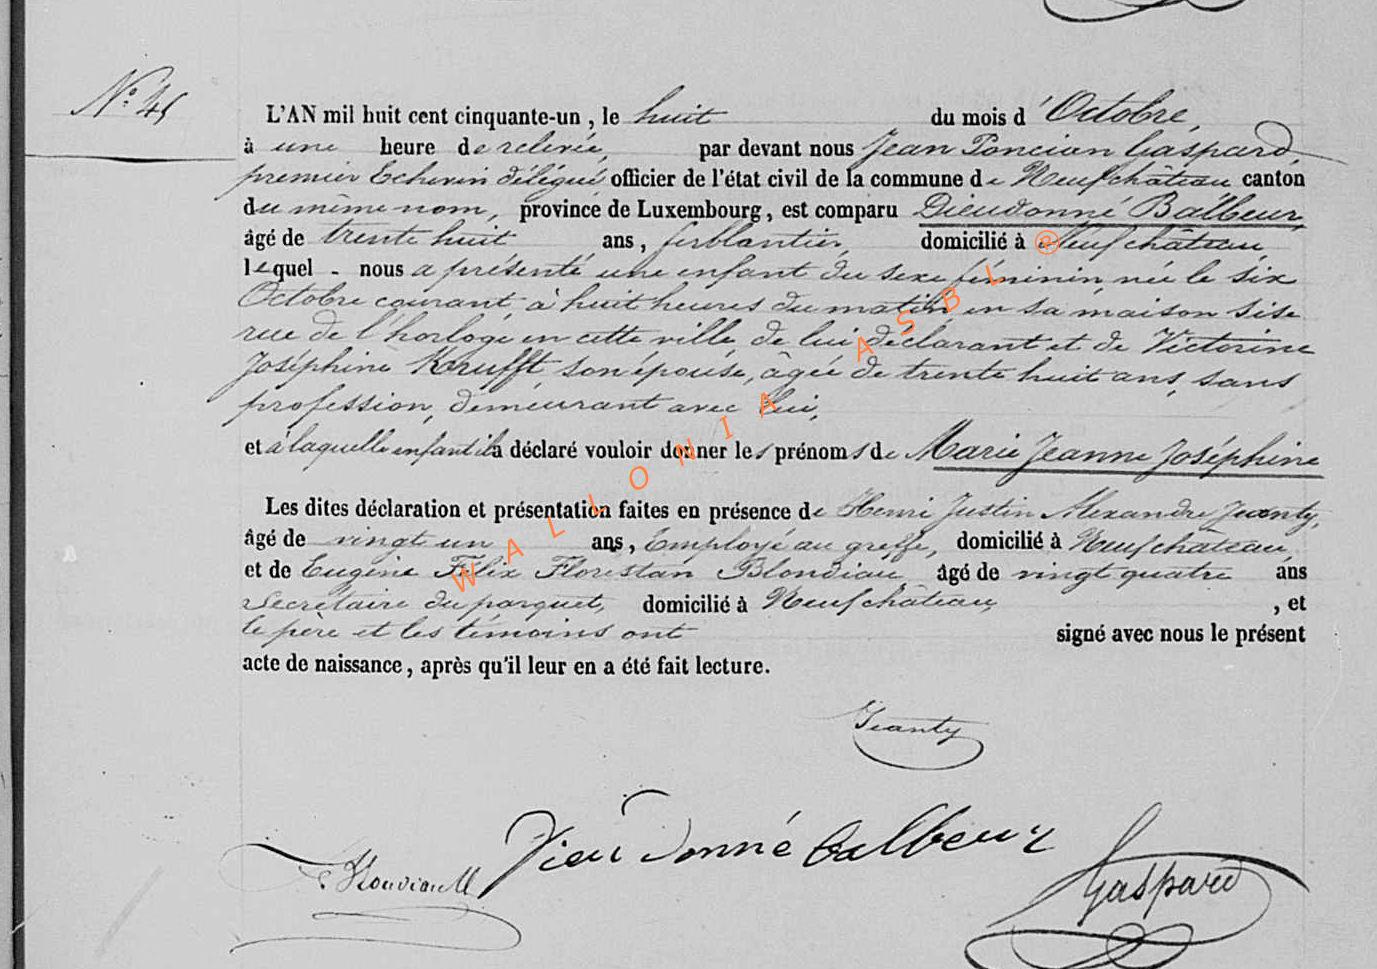 N° 45
L'AN mil huit cent cinquante-un, le huit du mois d'Octobre,
à une heure de relevée, par devant nous Jean Poncian Gaspard,
premier Echevin délégué officier de l'état civil de la commune de Neufchâteau canton
du même nom, province de Luxembourg, est comparu Dieudonné Balbeur,
âgé de trente huit ans, ferblantier, domicilié à Neufchâteau,
lequel - nous a présenté une enfant du sexe féminin, née le six
Octobre courant, à huit heures du matin en sa maison sise
rue de l'horloge en cette ville, de lui déclarant et de Victorine
Joséphine Krufft son épouse, âgée de trente huit ans, sans
profession, demeurant avec lui,
et à laquelle enfant il a déclaré vouloir donner les prénoms de Marie Jeanne Joséphine
Les dites déclaration et présentation faites en présence de Henri Justin Alexandre Jeanty,
âgé de vingt un ans, Employé au greffe, domicilié à Neufchâteau,
et de Eugène Félix Florestan Blondiau, âgé de vingt quatre ans
Secrétaire du parquet, domicilié à Neufchâteau, et
le père et les témoins ont signé avec nous le présent
acte de naissance, après qu'il leur en a été fait lecture.
Jeanty
Dieudonné Balbeur
Gaspard
@ WALLONIA ASBL